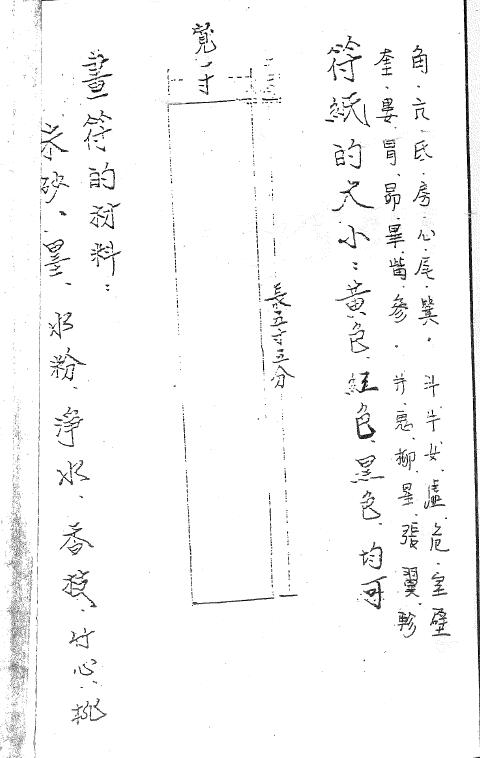 角、亢、氐、房、心、尾、箕。斗、牛、女、虛、危、室、壁
奎、婁、胃、昴、畢、觜、參。井、鬼、柳、星、張、翼、軫
符紙的大小：黃色、紅色、黑色、均可
長五寸五分
寬一寸
畫符的材料：
朱砂、墨、水粉、淨水、香枝、竹心、桃